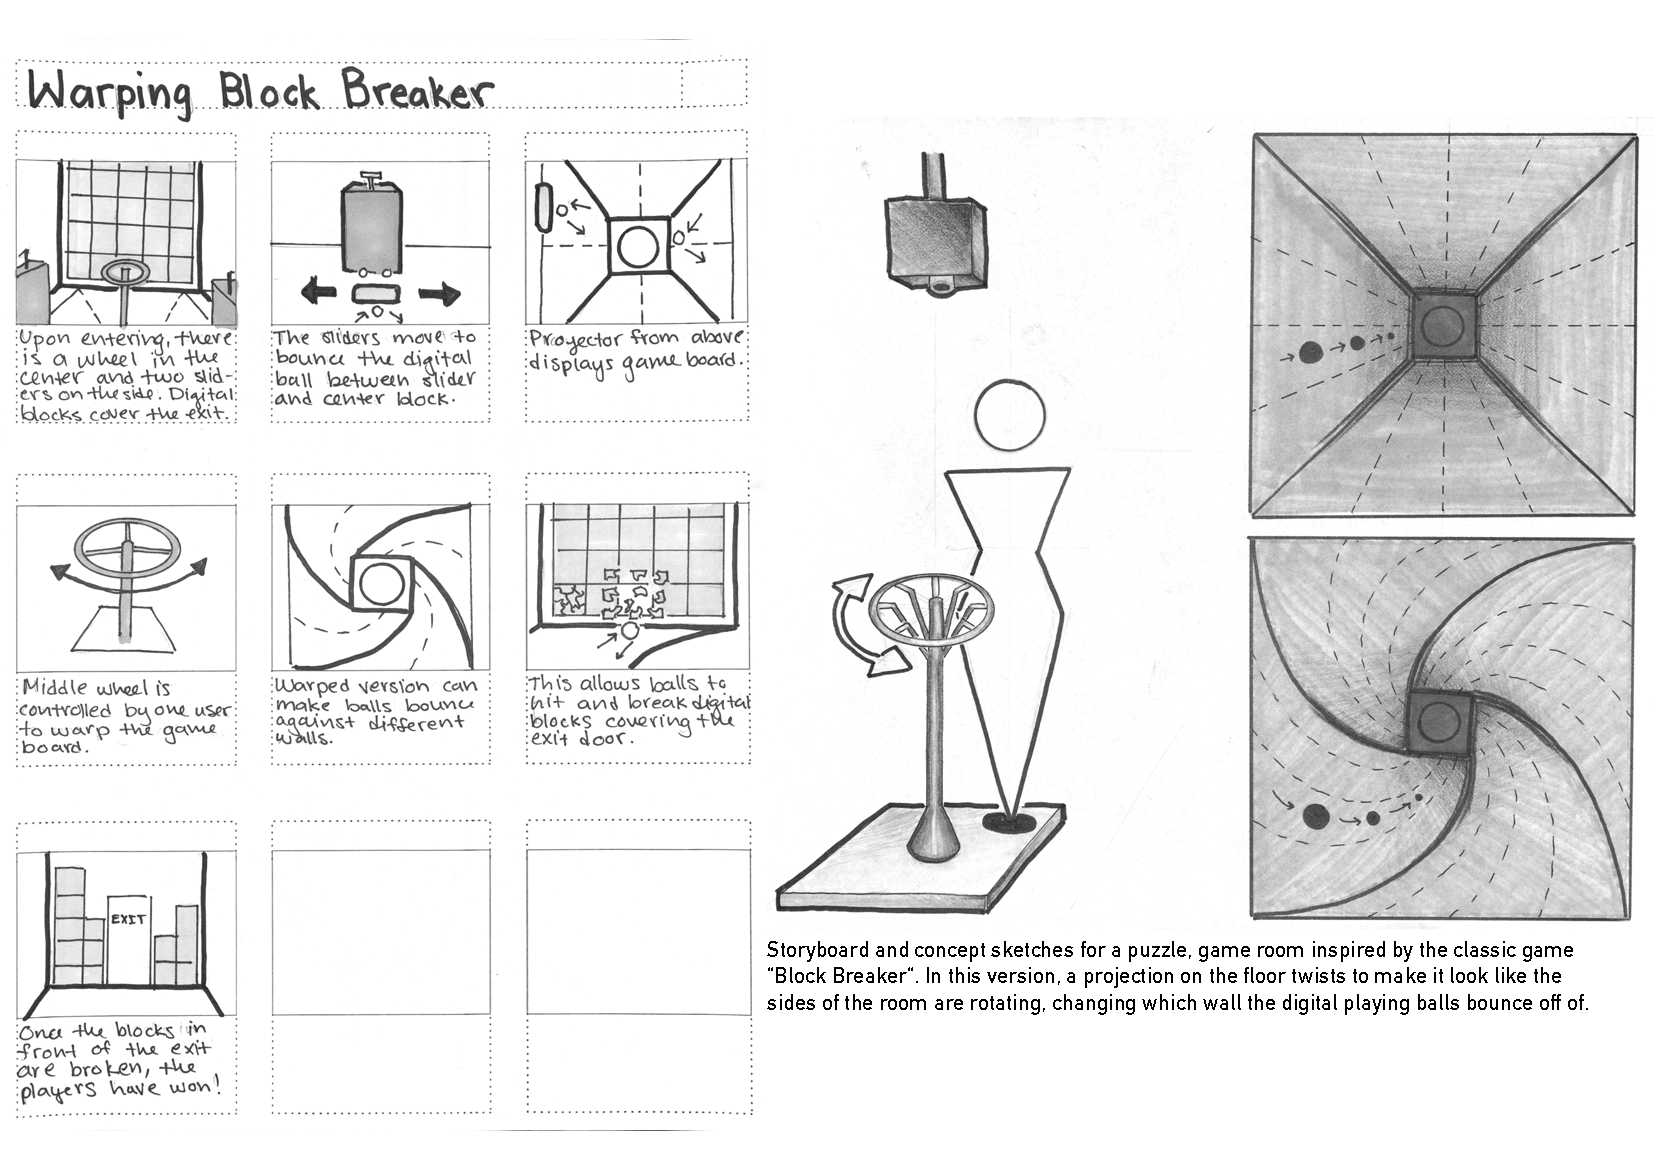 Warping Block Breaker
Upon entering, there
is a wheel in the
center and two slid-
ers on the side. Digital
blocks cover the exit.
The sliders move to
bounce the digital
ball between slider
and center block.
Proyector from above
displays game board.
Middle wheel is
controlled by one user
to warp the game
board.
Warped version can
make balls bounce
against different
walls.
This allows balls to
hit and break digital
blocks covering the
exit door.
EXIT
Once the blocks in
front of the exit
are broken, the
players have won!
Storyboard and concept sketches for a puzzle, game room inspired by the classic game
"Block Breaker". In this version, a projection on the floor twists to make it look like the
sides of the room are rotating, changing which wall the digital playing balls bounce off of.